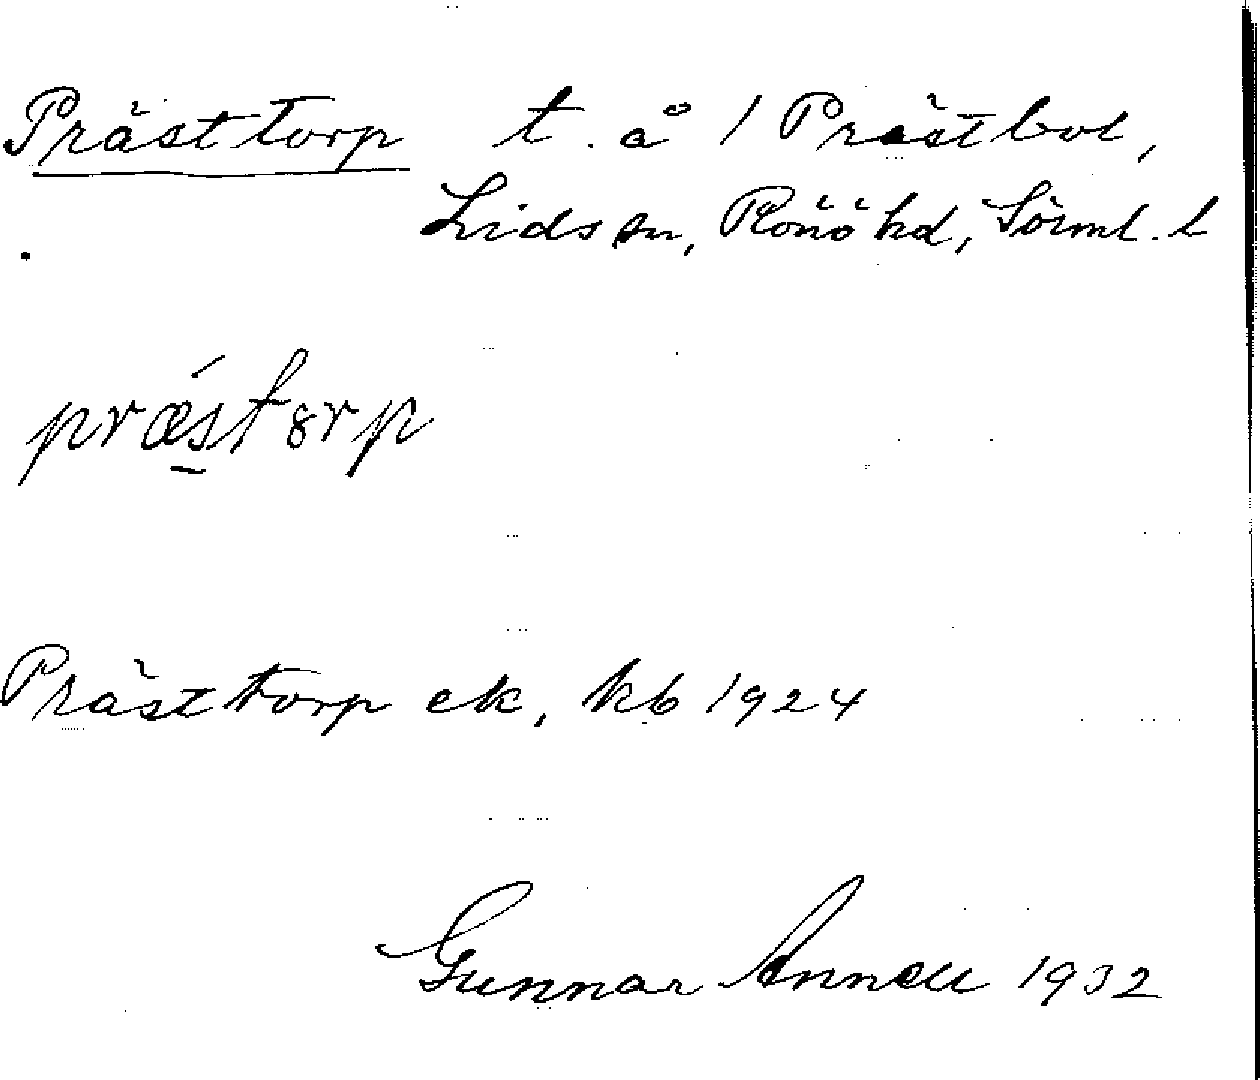 Prästtorp t. å 1 Prästbol,
Lids sn, Rönö hd, Sörml. l
præ´stor̀p
Prästtorp ek, kb 1924
Gunnar Annell 1932